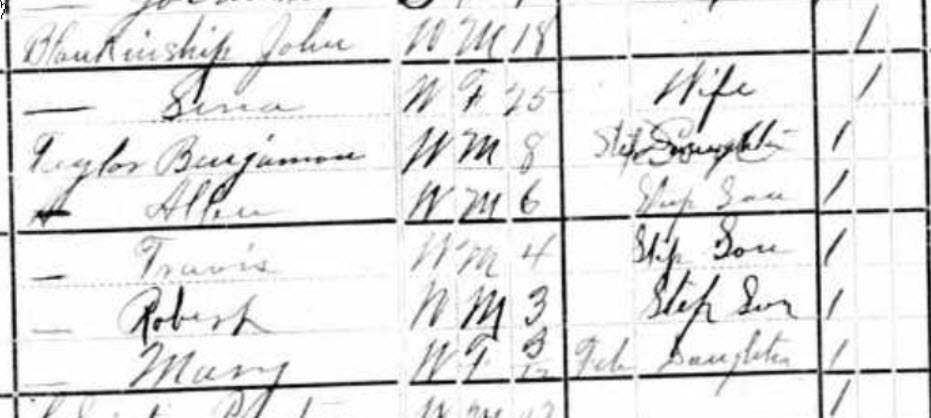 Blankinship John W M 18 1
— Sina W F 25 Wife 1
Taylor Benjamin W M 8 Step Daughter 1
— Allen W M 6 Step Son 1
— Travis W M 4 Step Son 1
— Robert W M 3 Step Son 1
— Mary W F 3/12 Feb Daughter 1
W M 1